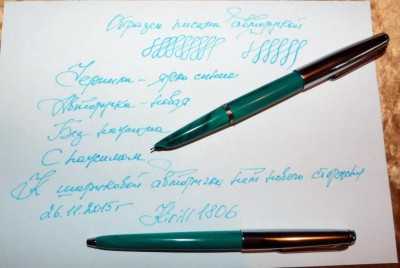 Образец письма авторучкой
Чернила - ярко синие
Авторучка - новая
Без нажима
С нажимом
К шариковой авторучки нет нового стержня
26.11.2015г Kirill 1806